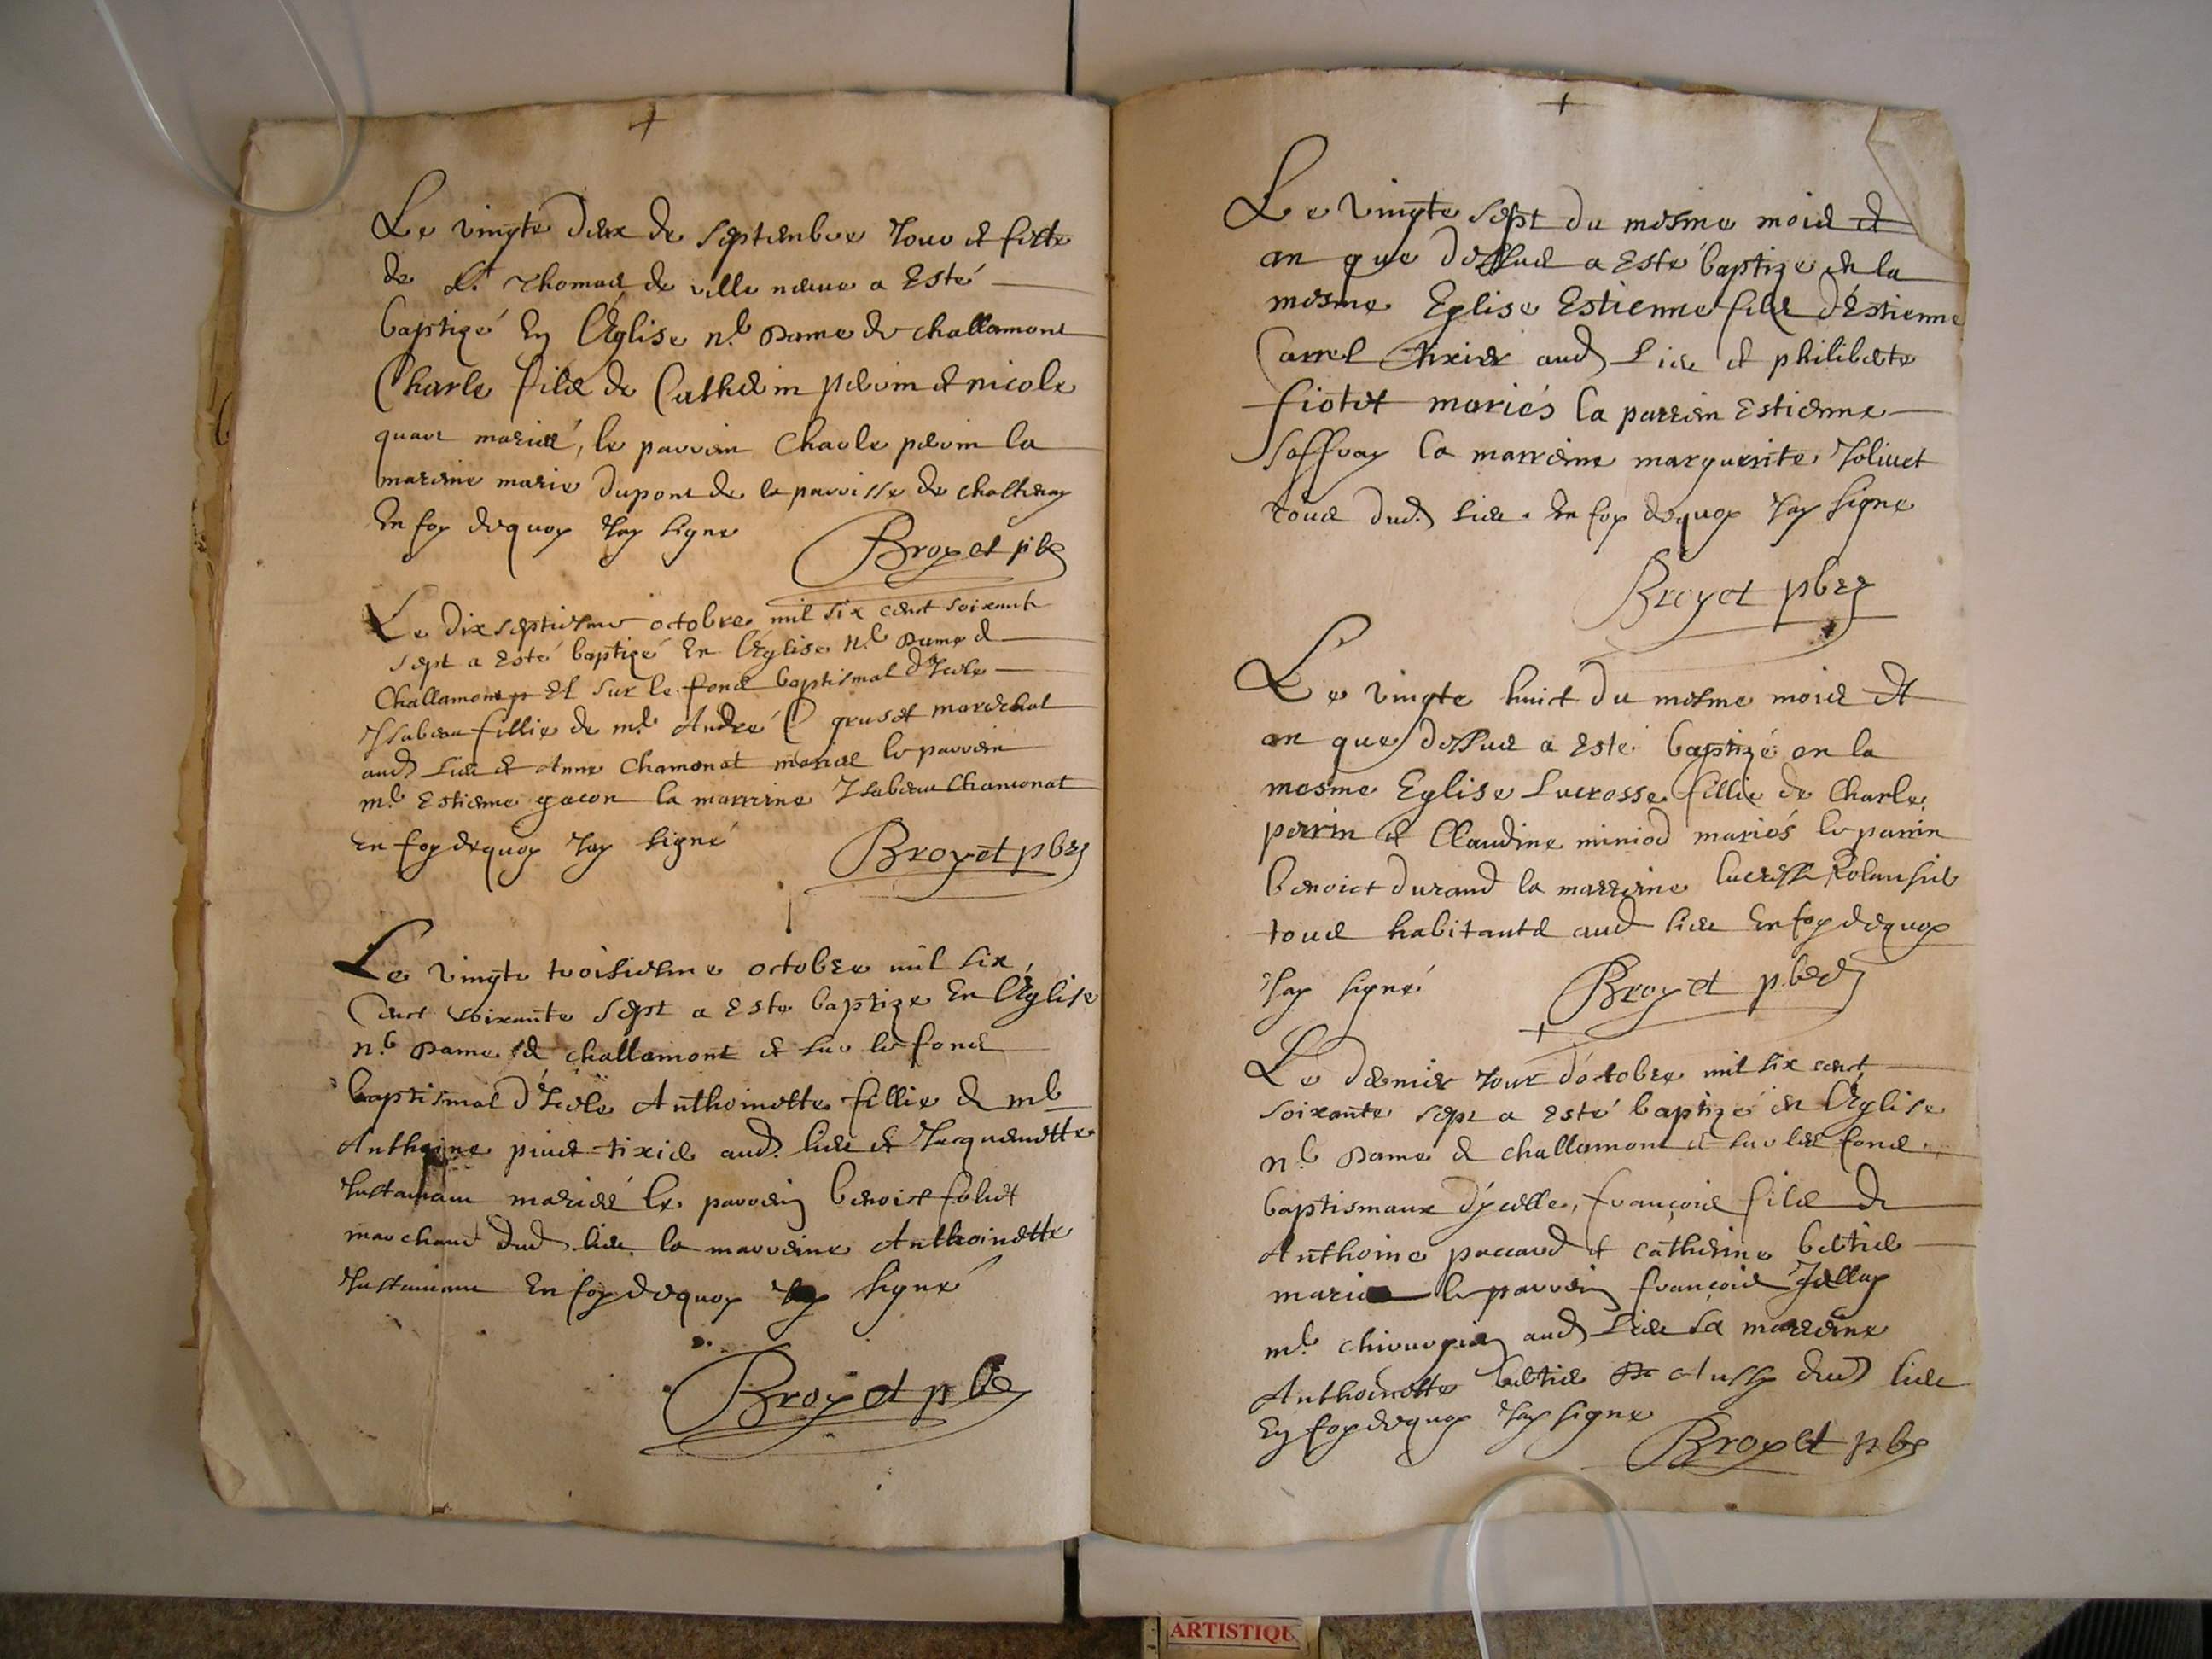 Le vingte deux de septembre Jour et feste
de St Thomas de ville neuve a Esté
baptizé En l'Eglise n.e Dame de challamont
Charle fils de Catherin perrin et nicole
mariés, le parrein Charle perrin la
marrine marie dupont de la parroisse de chastenay
En foy dequoy Jay signe
Broyet pbr
Le dixseptiesme octobre mil six cent soixante
sept a Esté baptizé En l'Eglise n.e Dame de
Challamont Et sur le fond baptismal d'Icele
Ysabeau fillie de m.e André gruset mareschal
aud. Lieu et Anne Chamonat mariés le parrein
m.e Estienne gacon la marrine Isabeau Chamonat
En foy dequoy Jay signé
Broyet pbr
Le vingte troisiesme octobre mil six
Cent soixante sept a Este baptize En l'Eglise
n.e Dame de challamont et sur le fond
baptismal d'Icele Anthoinette fillie de m.e
Anthoine pivet tixier aud. lieu et Jacquemette
mariés le parrein benoist folliet
marchand dud. lieu la marreine Anthoinette
En foy dequoy Jay signé
Broyet pbr
Le vingte sept du mesme mois et
an que dessus a Esté baptize en la
mesme Eglise Estienne fils d'Estienne
Carrel tixier aud. Lieu et philiberte
fiotet mariés la parrein Estienne
Joffray la marreine marguerite Jolivet
tous dud. lieu. En foy dequoy Jay signe
Broyet pbr
Le vingte huict du mesme mois et
an que dessus a esté baptizé en la
mesme Eglise Lucresse fillie de Charle
perrin et Claudine miniod mariés le parrin
benoict durand la marreine lucresse
tous habitants aud lieu En foy dequoy
Jay signé
Broyet pbr
Le dernier Jour d'octobre mil six cent
soixante sept a esté baptizé en l'Eglise
n.e Dame de challamont et sur les fonds
baptismaux d'ycelle, françois fils de
Anthoine paccard et catherine
mariés le parrein françois
m.e chirurgien aud Lieu La marreine
Anthoinette dud lieu
En foy dequoy Jay signe
Broyet pbr
ARTISTIQU